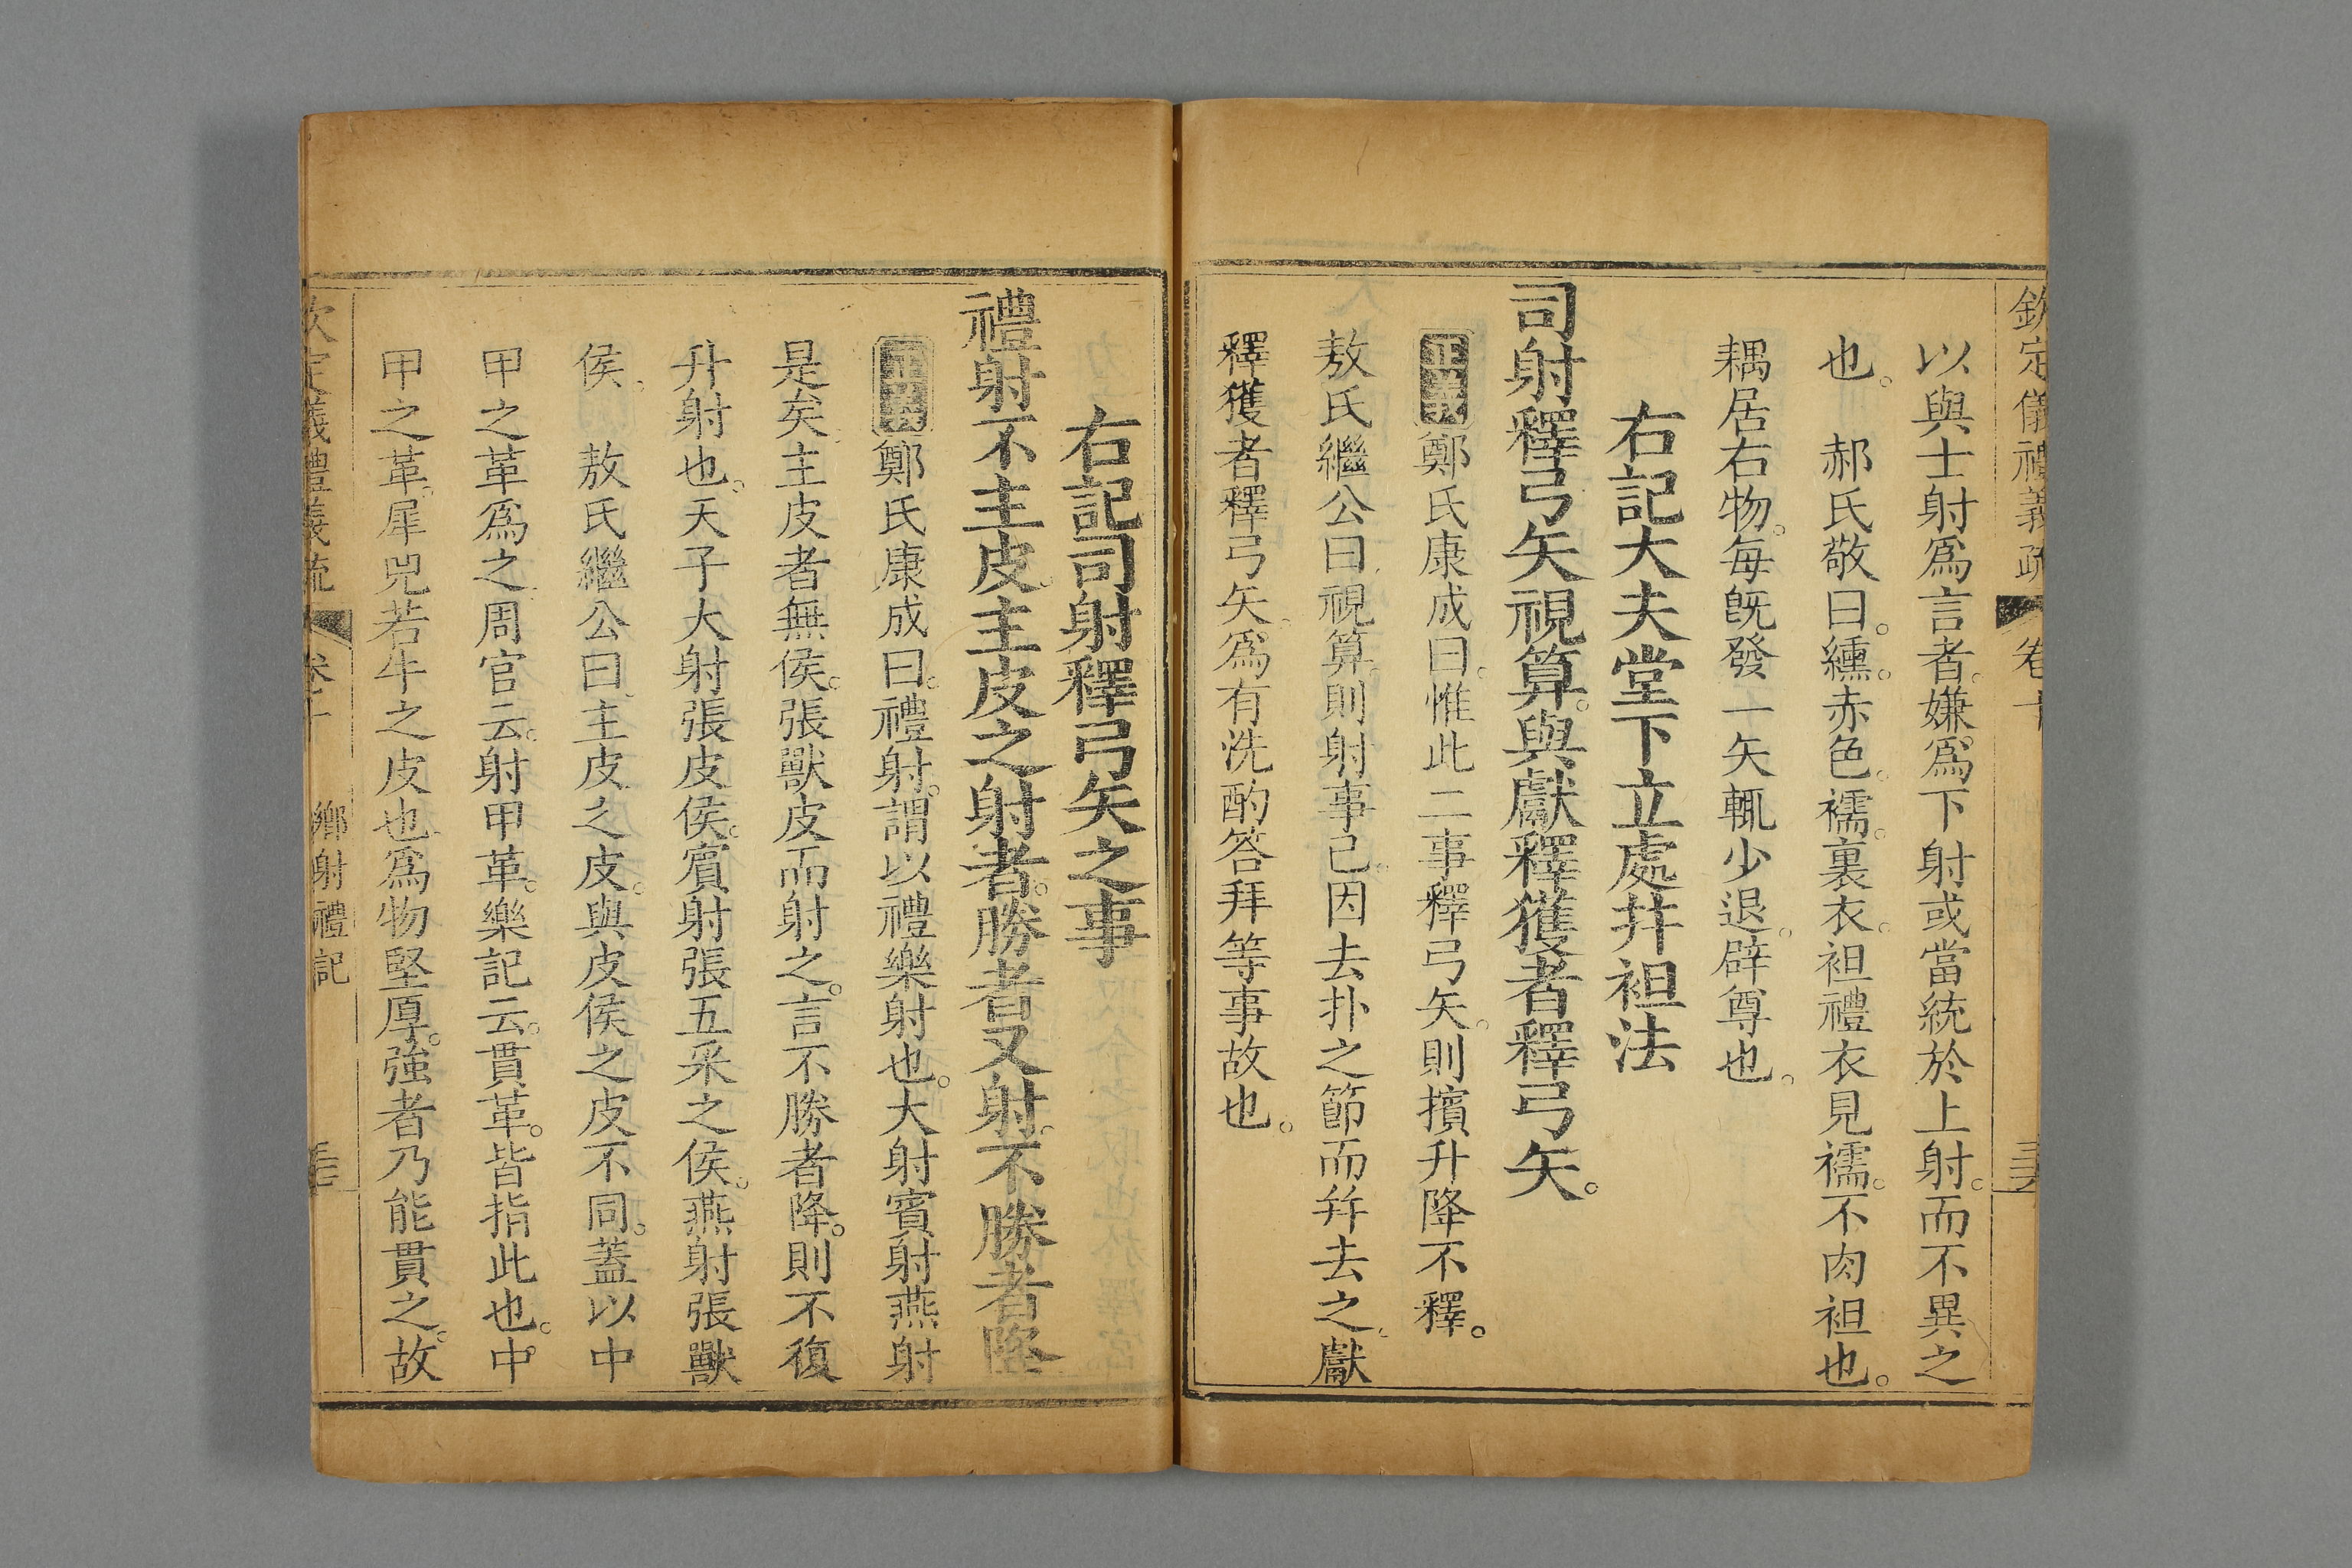 欽定儀禮義疏 卷十
以與士射爲言者嫌爲下射或當統於上射而不異之
也。 郝氏敬曰。纁。赤色。襦。裏衣。袒禮衣見襦。不肉袒也。
耦居右物。每旣發一矢輒少退。辟尊也。
右記大夫堂下立處幷袒法
司射釋弓矢視算。與獻釋獲者釋弓矢。
正義鄭氏康成曰。惟此二事釋弓矢。則擯升降不釋。
敖氏繼公曰視算。則射事已。因去扑之節而幷去之。獻
釋獲者釋弓矢。爲有洗酌答拜等事故也。
右記司射釋弓矢之事
禮射不主皮。主皮之射者。勝者又射。不勝者降
正義鄭氏康成曰。禮射。謂以禮樂射也。大射賓射燕射
是矣。主皮者無侯。張獸皮而射之。言不勝者降。則不復
升射也。天子大射張皮侯。賓射張五采之侯。燕射張獸
侯。 敖氏繼公曰。主皮之皮。與皮侯之皮不同。蓋以中
甲之革爲之。周官云。射甲革。樂記云。貫革。皆指此也。中
甲之革。犀兕若牛之皮也。爲物堅厚。強者乃能貫之。故
欽定儀禮義疏 卷十 鄉射禮記